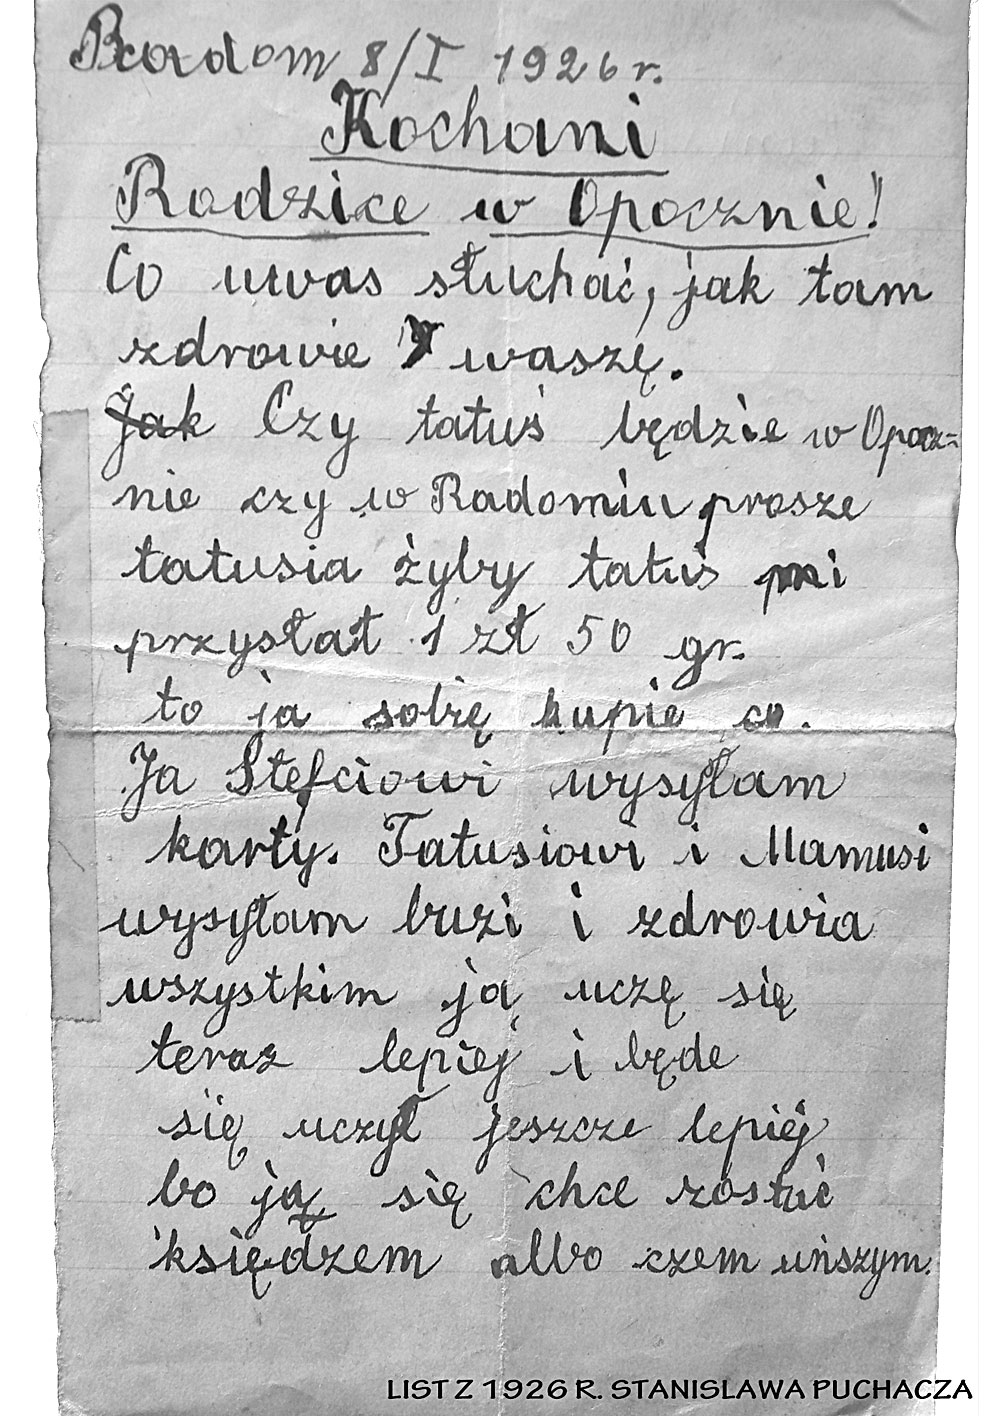 Radom 8/I 1926 r.
Kochani
Rodzice w Opocznie!
Co uwas słuchać, jak tam
zdrowie waszę.
Jak Czy tatuś będzie w Opocz=
nie czy w Radomiu prosze
tatusia żyby tatuś mi
przysłał 1 zł 50 gr.
to ja sobię kupie co.
Ja Stefciowi wysyłam
karty. Tatusiowi i Mamusi
wysyłam buzi i zdrowia
wszystkim ją uczę się
teraz lepiej i będe
się uczył jeszcze lepiej
bo ją się chce zostać
księdzem albo czem uńszym.
LIST Z 1926 R. STANISLAWA PUCHACZA